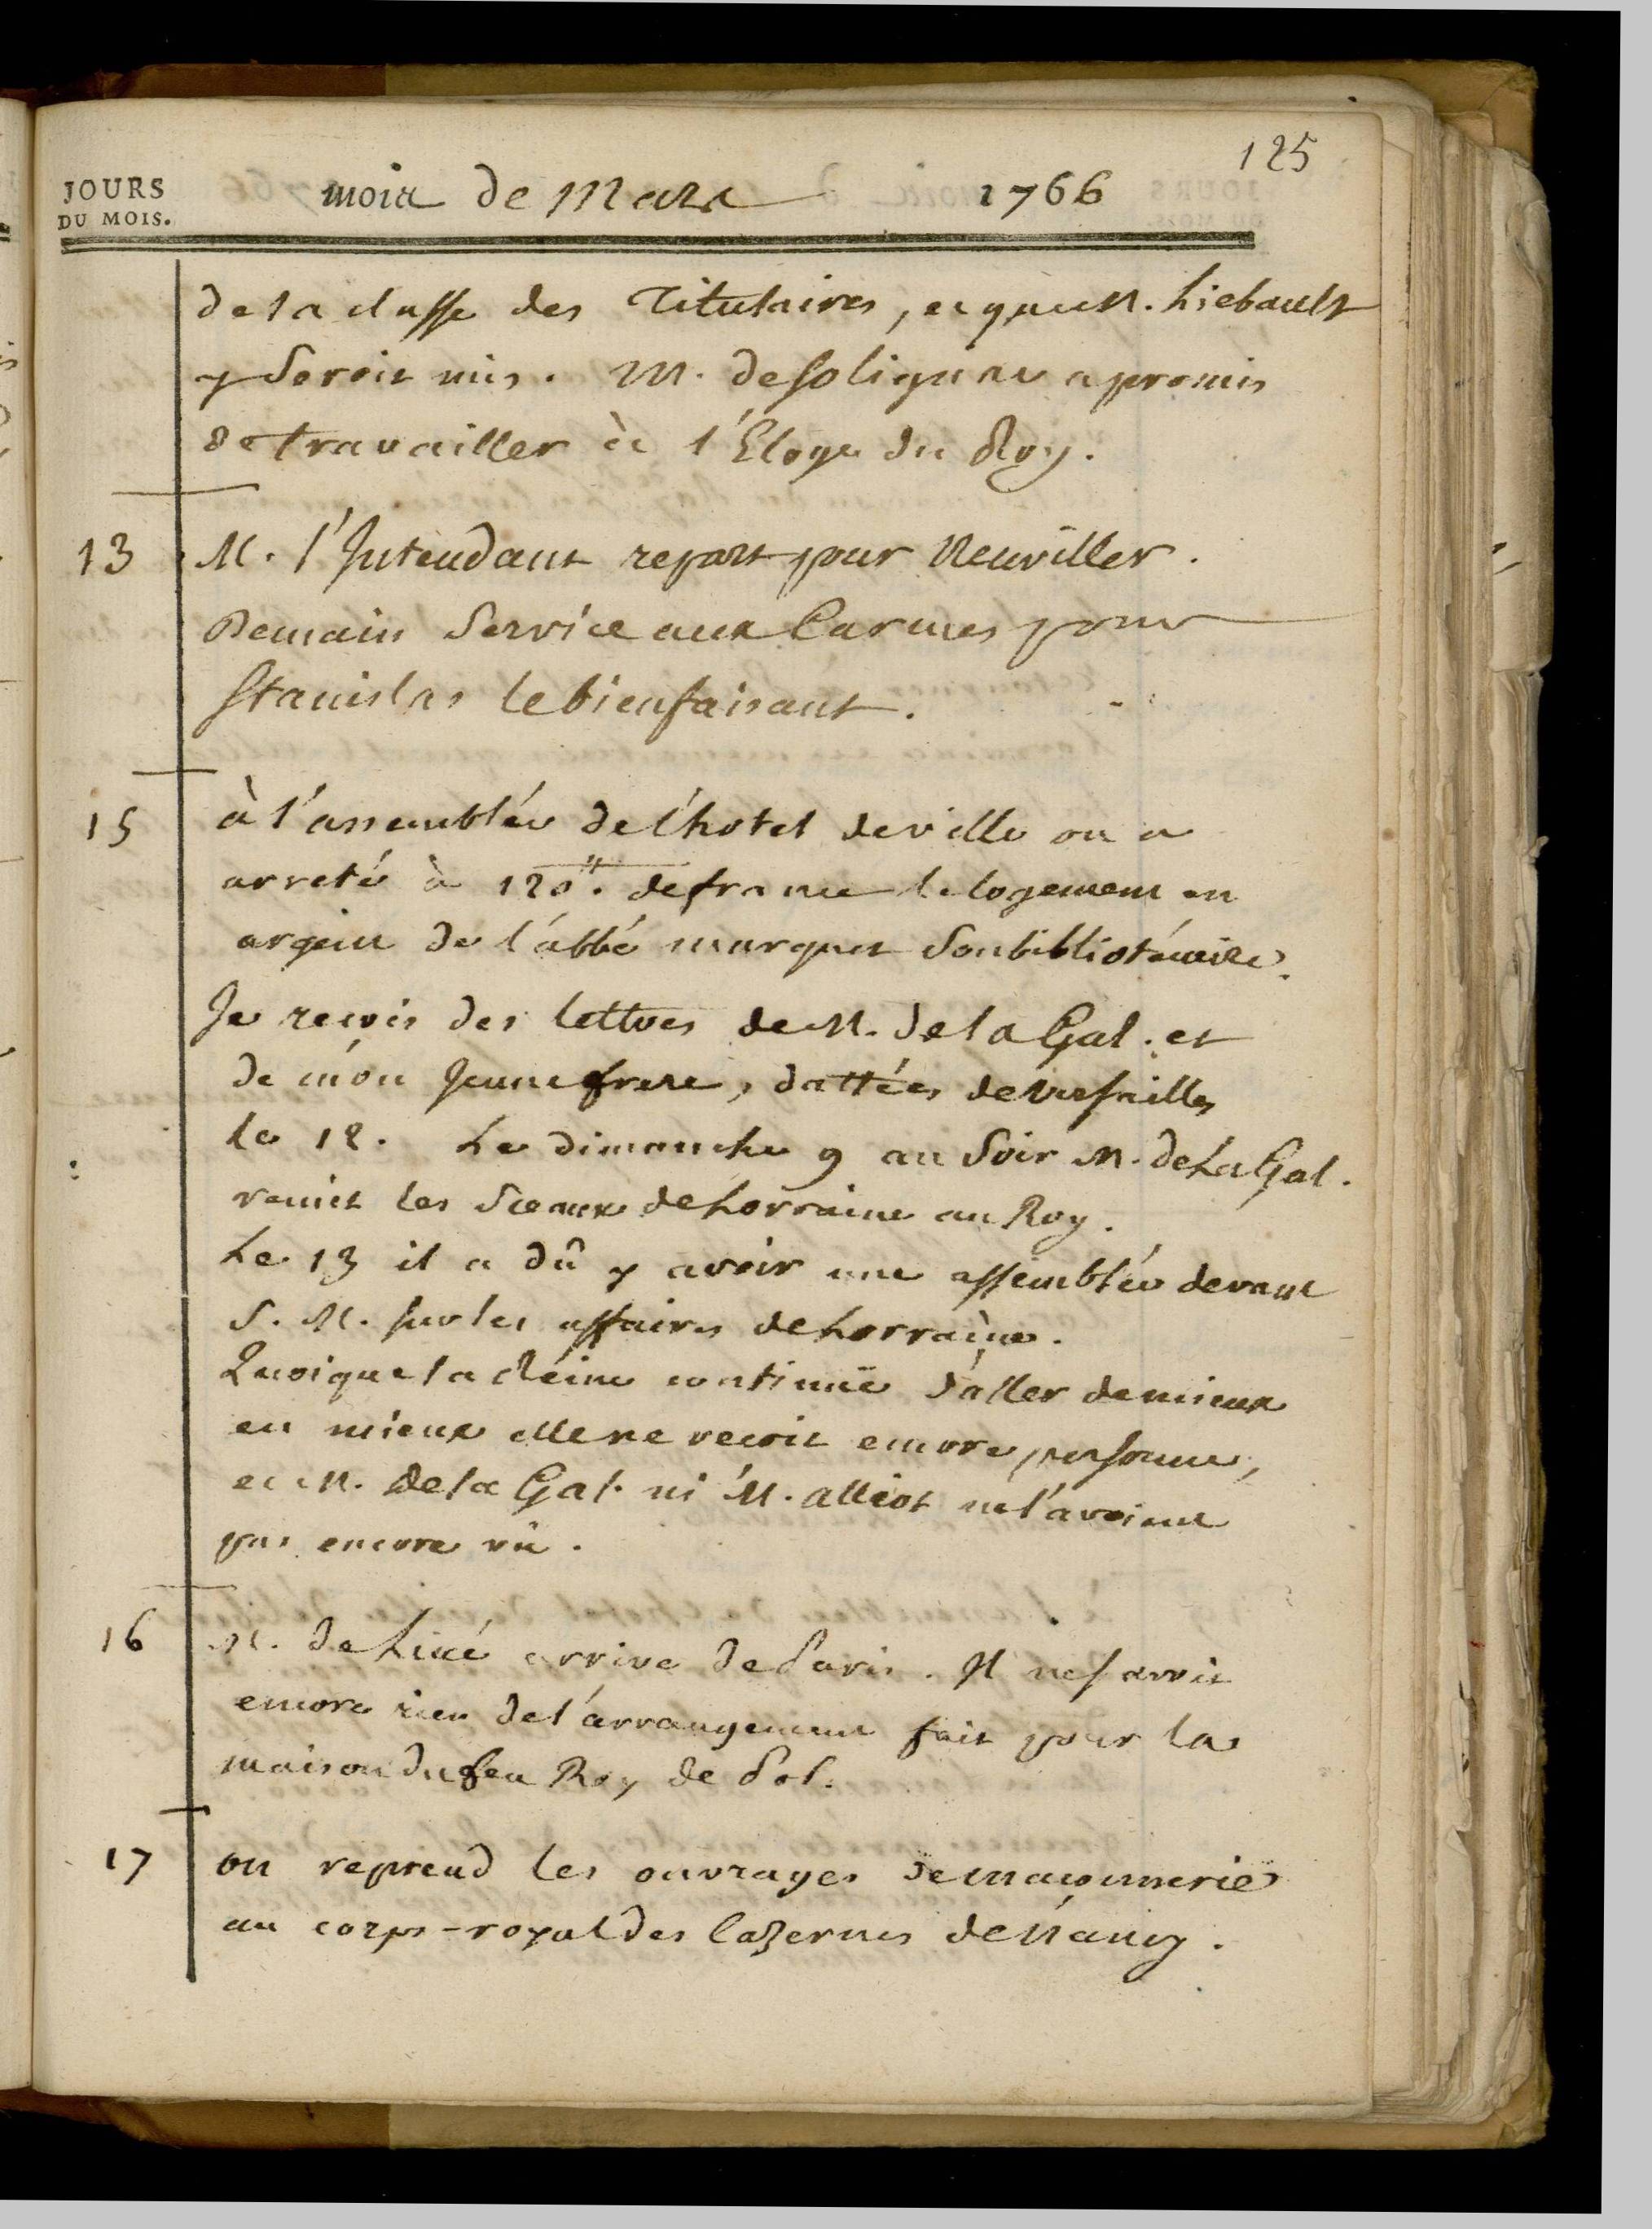 125
JOURS
DU MOIS.
mois de Mars 1766
de la classe des Titulaires, et que M. Liebault
y seroit mis. M. de Solignac a promis
de travailler à l'Eloge du Roy.
13 M. l'Intendant repart pour Neuviller.
Demain Service aux Carmes pour
Stanislas le bienfaisant.
15 à l'assemblée de l'hotel de ville on a
arreté à 120 ₶. de france le logement en
argent de l'abbé marquet son bibliotécaire.
Je recois des lettres de M. de la Gal. et
de mon Jeune frere, dattées de Versailles
le 12. Le dimanche 9 au Soir M. de La Gal.
remit les Sceaux de Lorraine au Roy.
Le 13 il a dû y avoir une assemblée devant
S. M. sur les affaires de Lorraine.
Quoique la Réine continuë d'aller de mieux
en mieux elle ne recoit encore personne,
et M. de la Gal. ni M. alliot ne l'avoient
pas encore vû.
16 M. de Lucé arrive de Paris. Il ne savoit
encore rien de l'arrangement fait pour la
maison du feu Roy de Pol.
17 on reprend les ouvrages de maçonnerie
au corps-royal des Cazernes de Nancy.